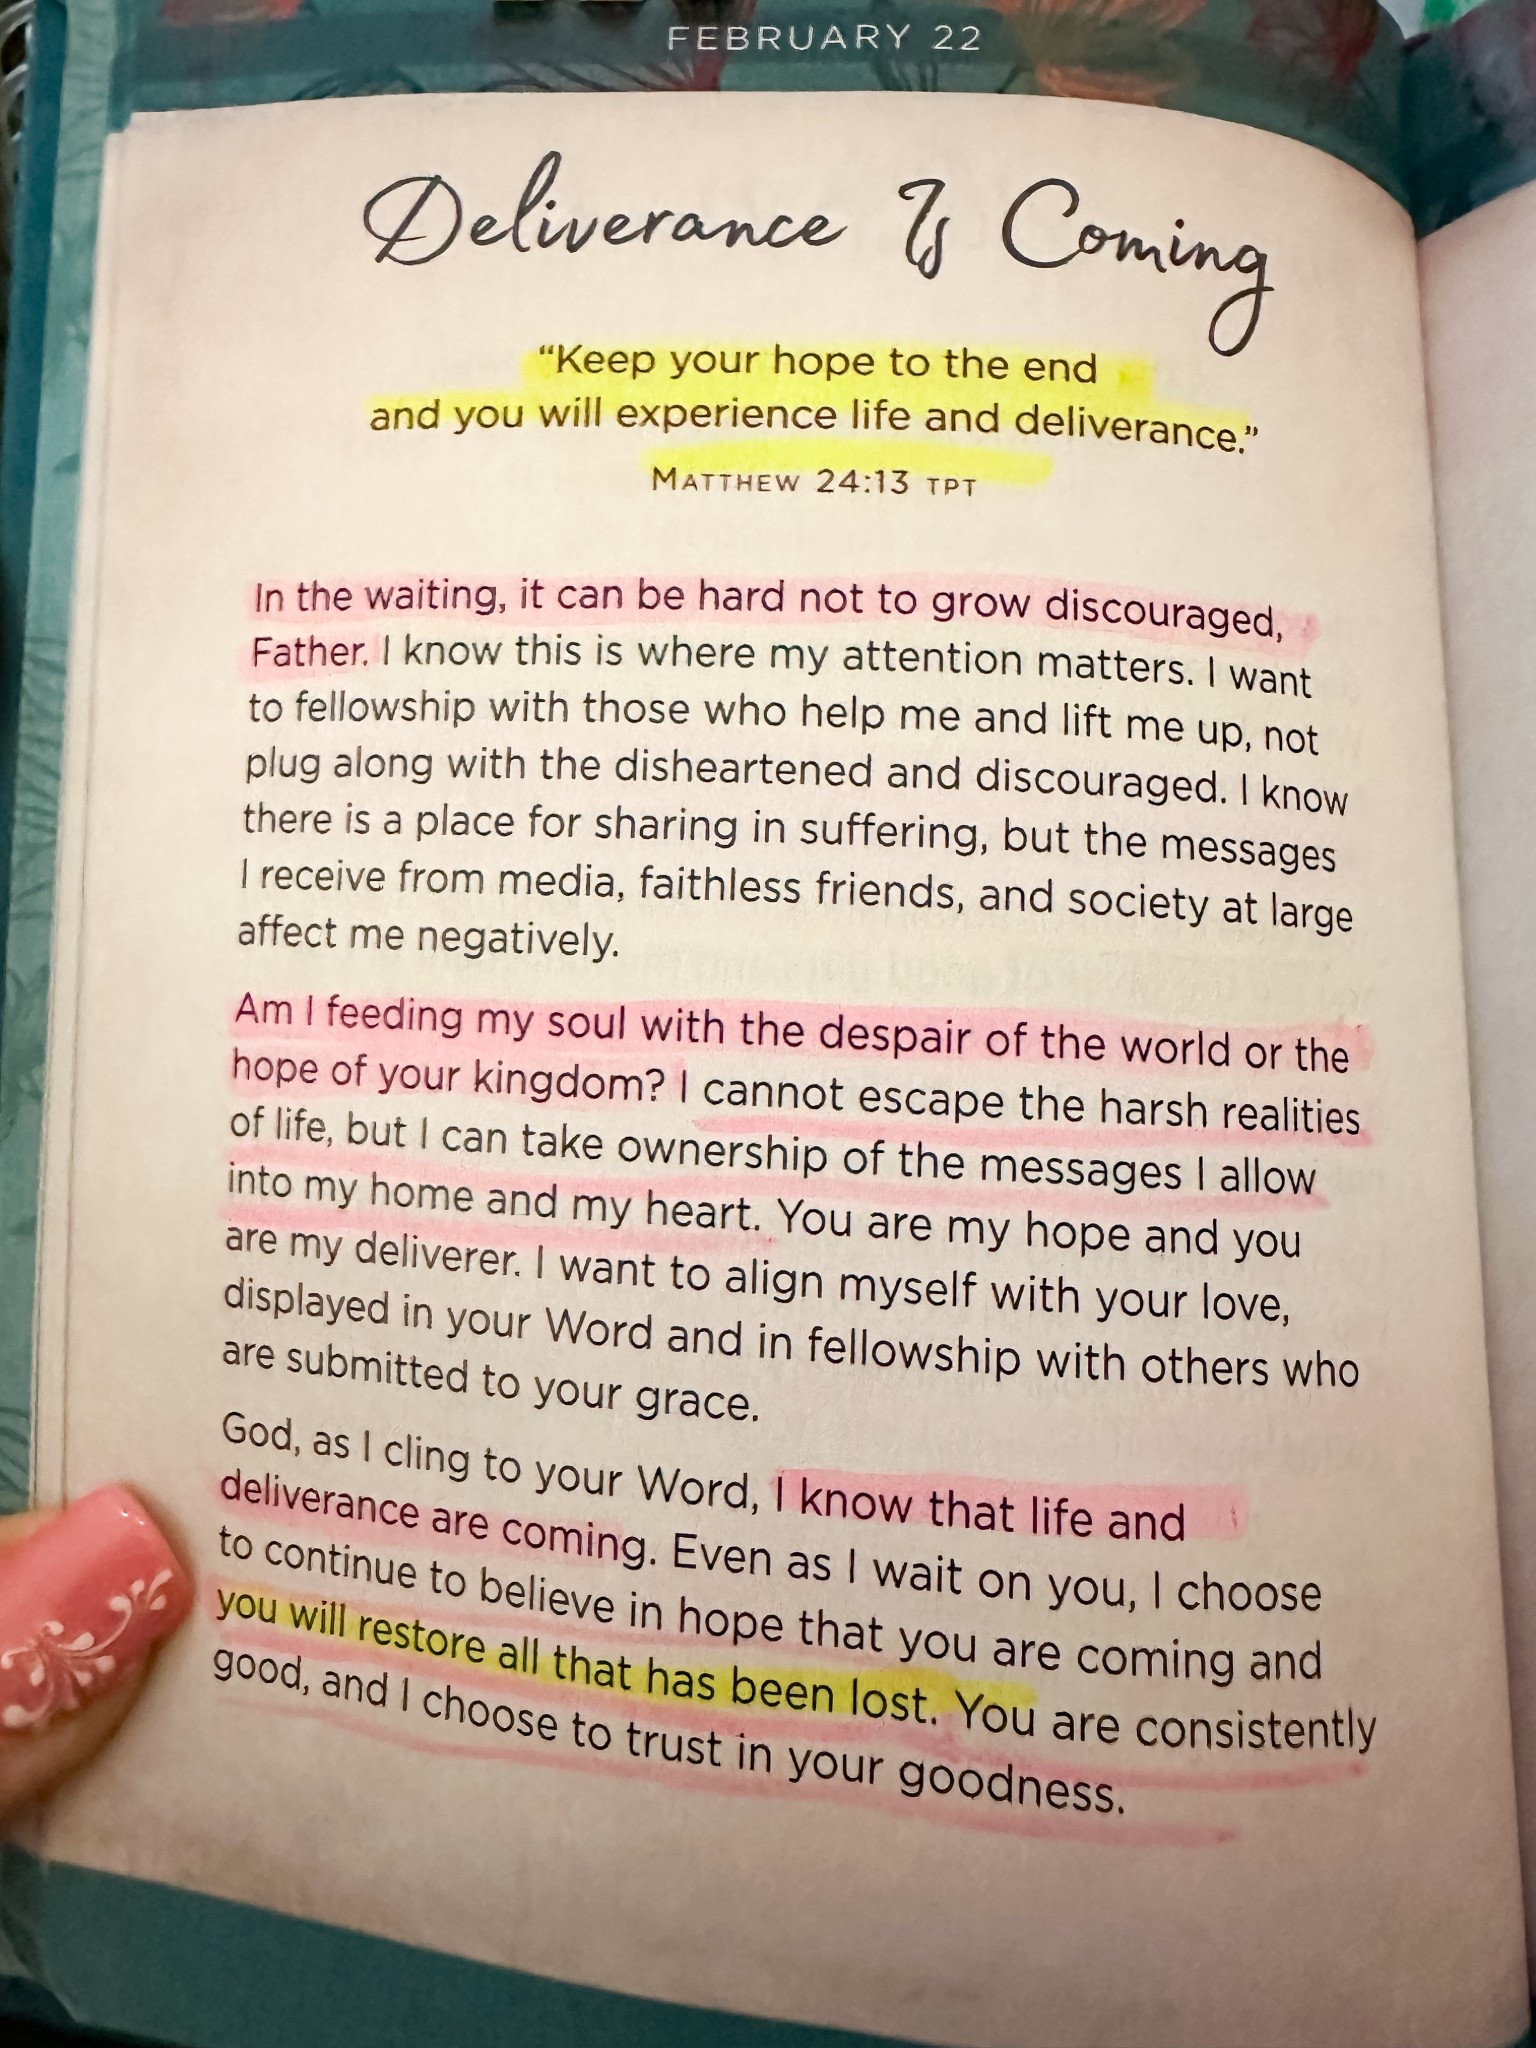 FEBRUARY 22
Deliverance Is Coming
“Keep your hope to the end
and you will experience life and deliverance.”
MATTHEW 24:13 TPT
In the waiting, it can be hard not to grow discouraged,
Father. I know this is where my attention matters. I want
to fellowship with those who help me and lift me up, not
plug along with the disheartened and discouraged. I know
there is a place for sharing in suffering, but the messages
I receive from media, faithless friends, and society at large
affect me negatively.
Am I feeding my soul with the despair of the world or the
hope of your kingdom? I cannot escape the harsh realities
of life, but I can take ownership of the messages I allow
into my home and my heart. You are my hope and you
are my deliverer. I want to align myself with your love,
displayed in your Word and in fellowship with others who
are submitted to your grace.
God, as I cling to your Word, I know that life and
deliverance are coming. Even as I wait on you, I choose
to continue to believe in hope that you are coming and
you will restore all that has been lost. You are consistently
good, and I choose to trust in your goodness.